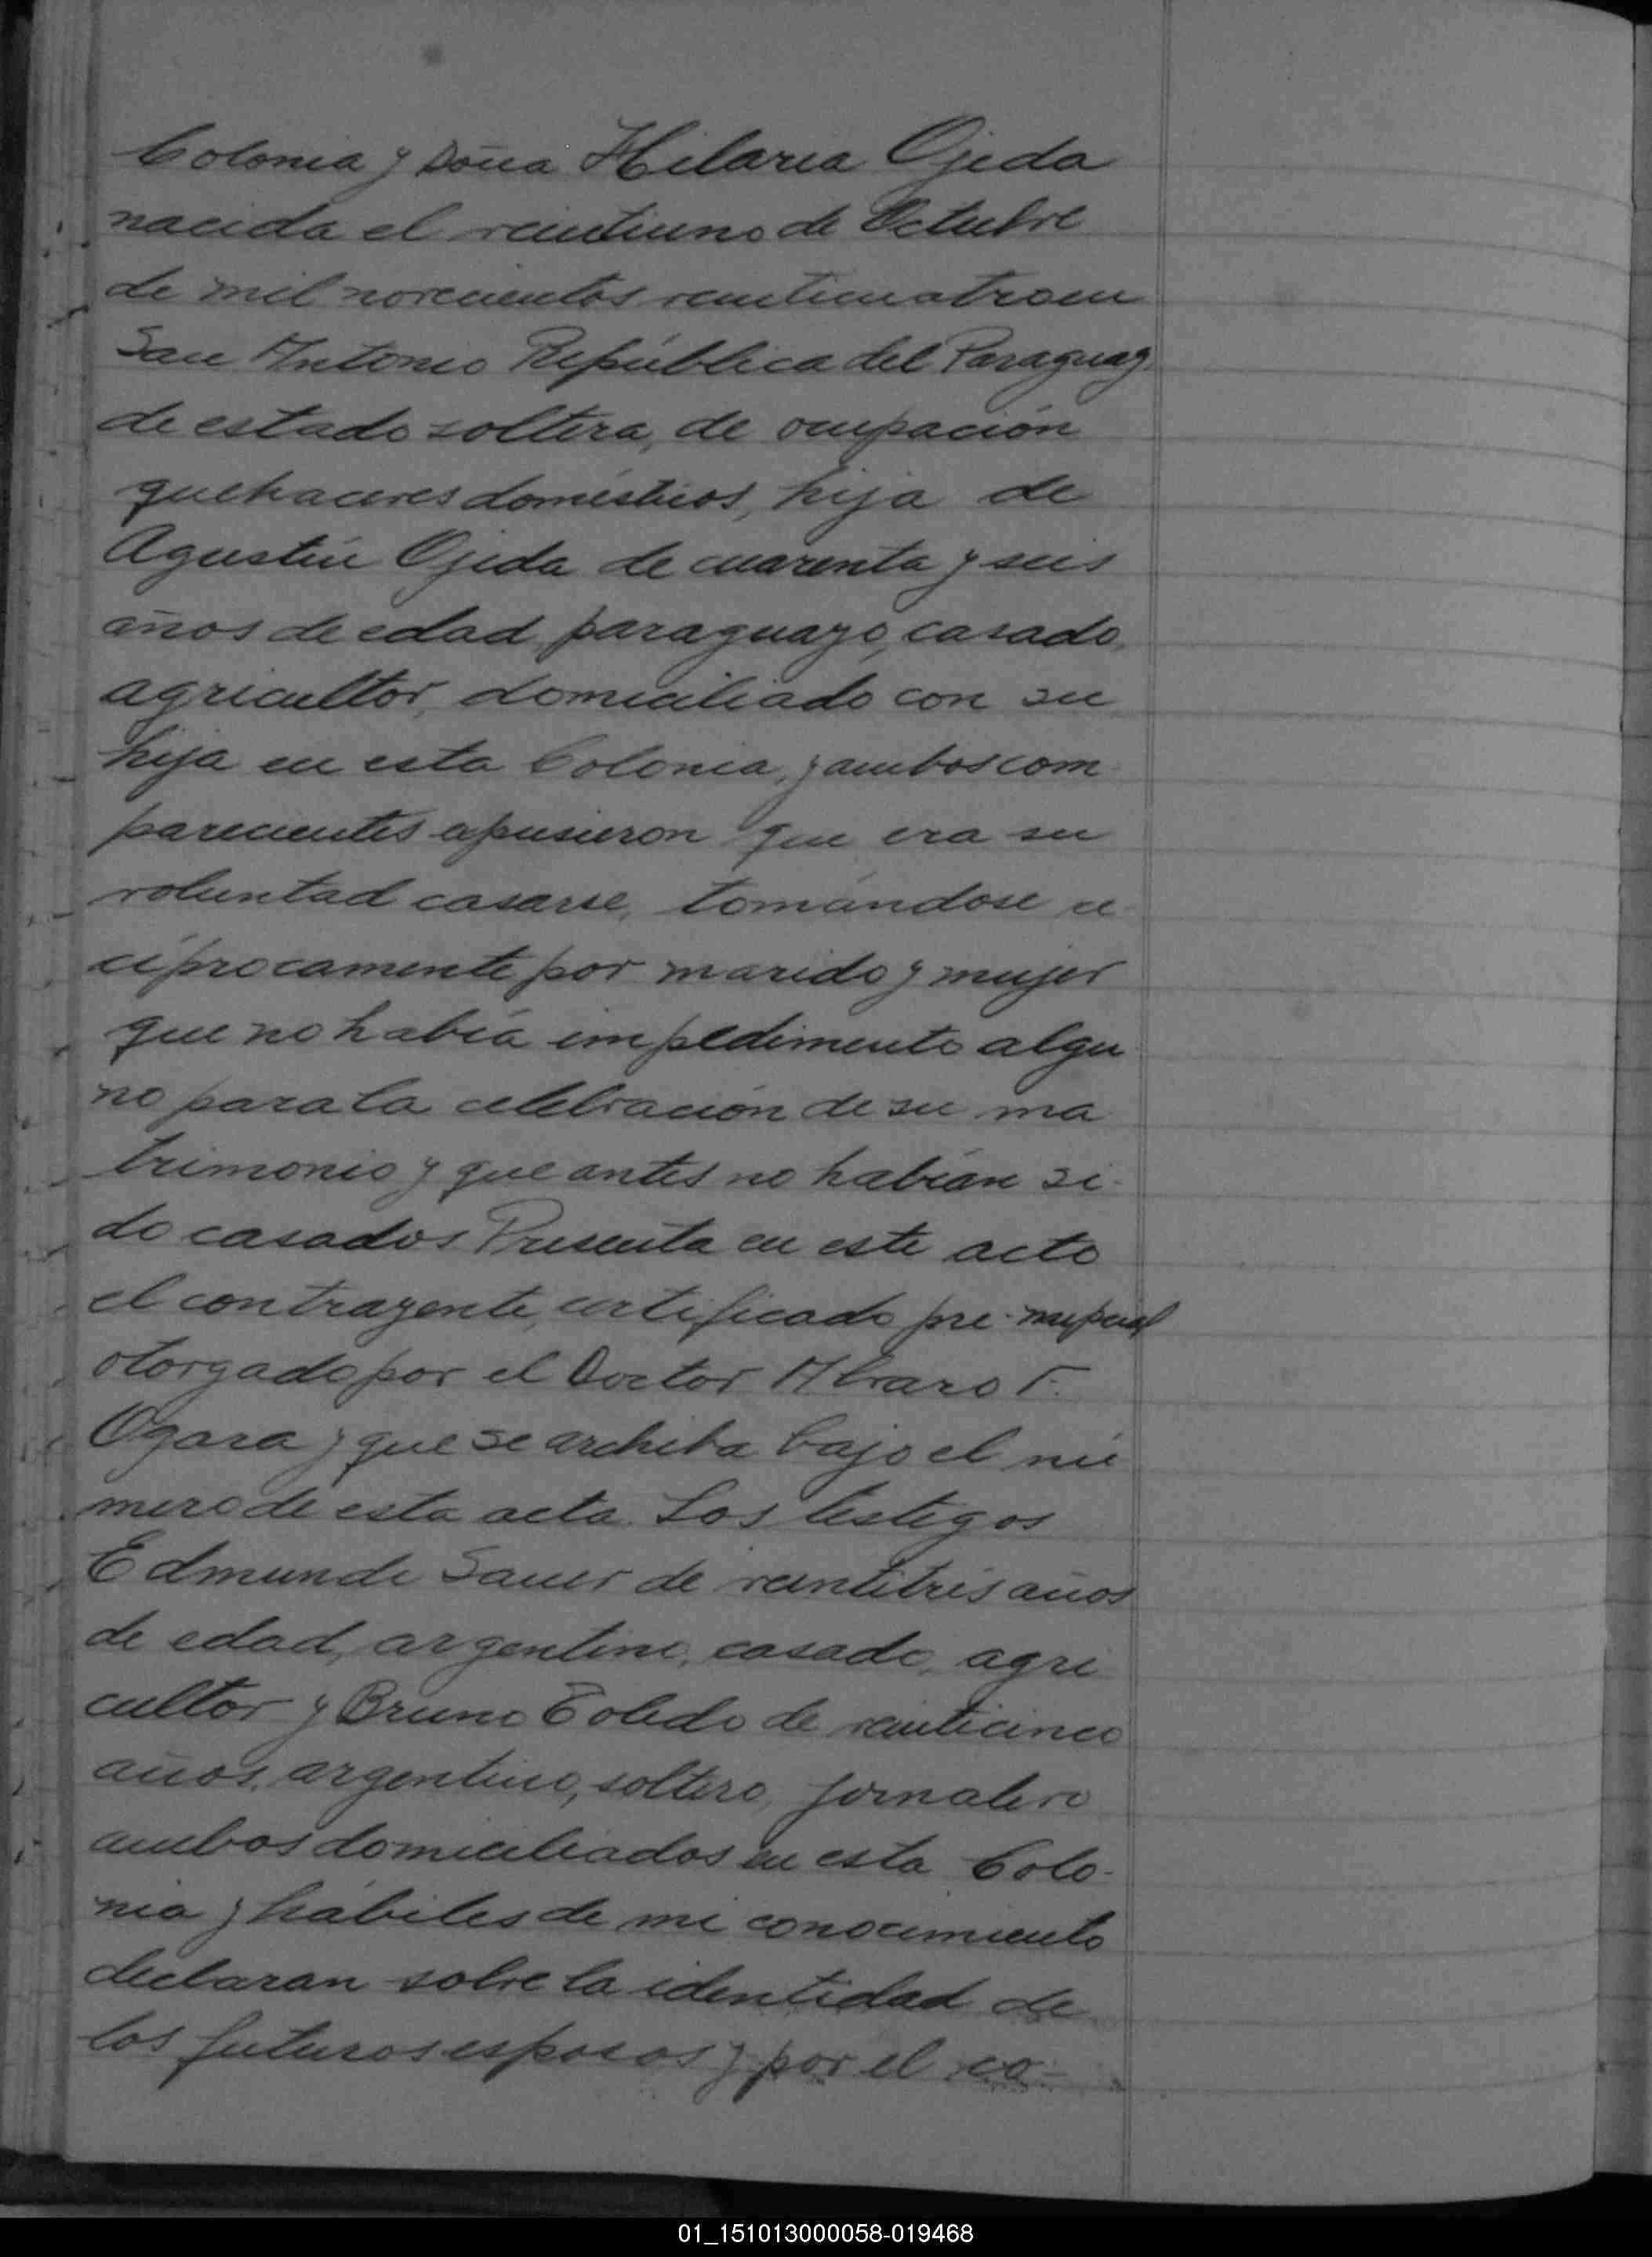 Colonia y Doña Hilaria Ojeda
nacida el veintiuno de Octubre
de mil novecientos veinticuatro en
San Antonio República del Paraguay,
de estado soltera, de ocupación
quehaceres domésticos, hija de
Agustín Ojeda de cuarenta y seis
años de edad, paraguayo, casado,
agricultor, domiciliado con su
hija en esta Colonia, y ambos com-
parecientes expusieron que era su
voluntad casarse, tomándose re-
ciprocamente por marido y mujer
que no había impedimento algu-
no para la celebración de su ma-
trimonio y que antes no habían si-
do casados. Presenta en este acto
el contrayente, certificado pre-nupcial
otorgado por el Doctor Alvaro F.
Ogara y que se archiba bajo el nú-
mero de esta acta. Los testigos
Edmundo Sauer de veintitrés años
de edad, argentino, casado, agri-
cultor y Bruno Toledo de veinticinco
años, argentino, soltero, jornalero
ambos domiciliados en esta Colo-
nia y hábiles de mi conocimiento
declaran sobre la identidad de
los futuros esposos y por el co-
01_151013000058-019468